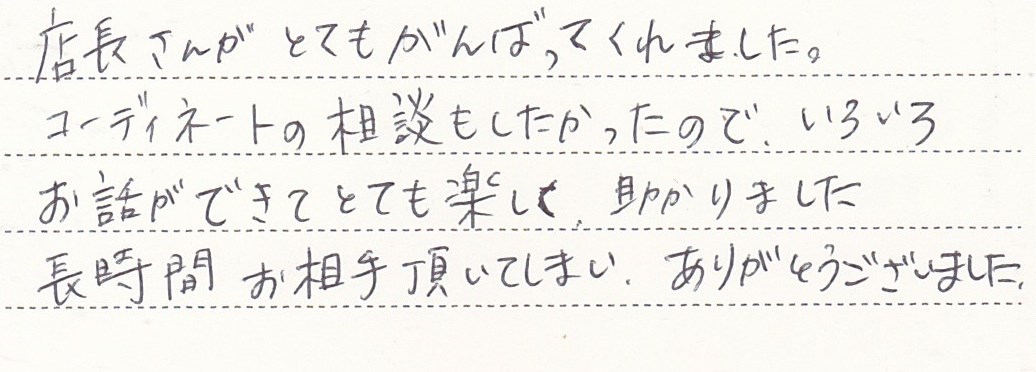 店長さんがとてもがんばってくれました。
コーディネートの相談もしたかったので、いろいろ
お話ができてとても楽しく、助かりました
長時間お相手頂いてしまい、ありがとうございました、